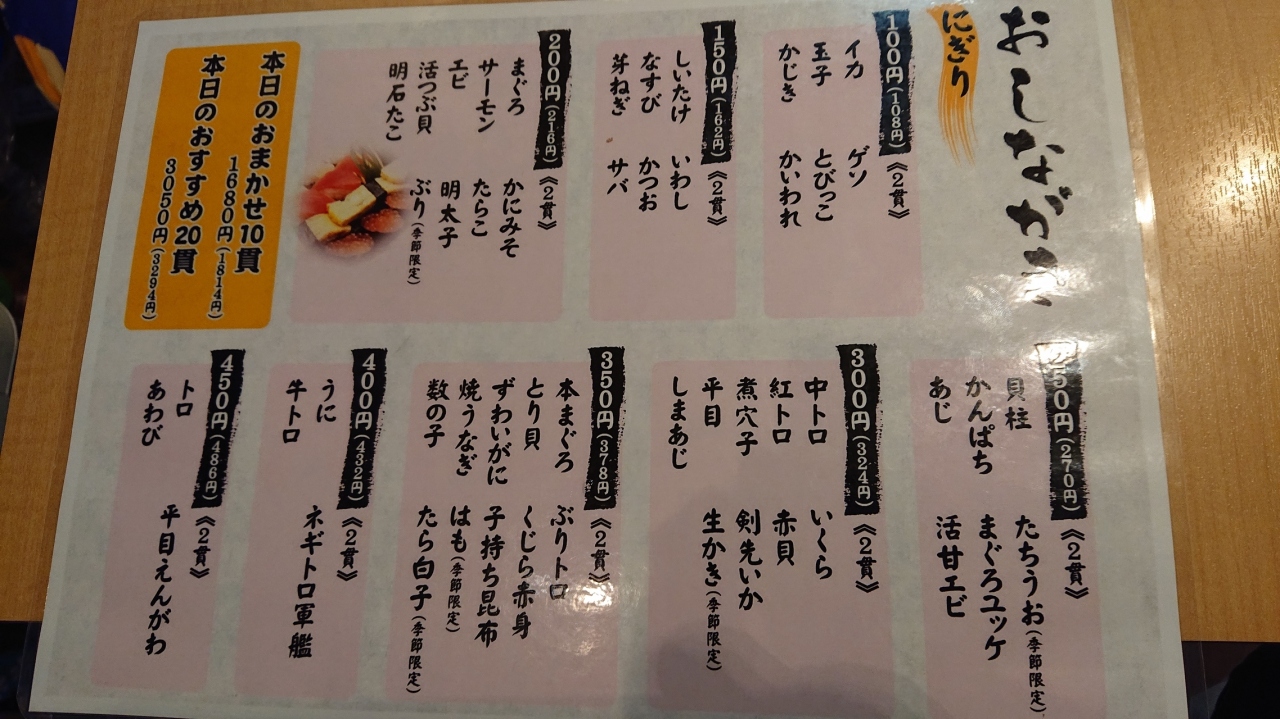 おしながき
にぎり
100円(108円)《2貫》
イカ ゲソ
玉子 とびっこ
かじき かいわれ
150円(162円)《2貫》
しいたけ いわし
なすび かつお
芽ねぎ サバ
200円(216円)《2貫》
まぐろ かにみそ
サーモン たらこ
エビ 明太子
活つぶ貝 ぶり(季節限定)
明石たこ
本日のおまかせ10貫
1680円(1814円)
本日のおすすめ20貫
3050円(3294円)
250円(270円)《2貫》
貝柱 たちうお(季節限定)
かんぱち まぐろユッケ
あじ 活甘エビ
300円(324円)《2貫》
中トロ いくら
紅トロ 赤貝
煮穴子 剣先いか
平目 生かき(季節限定)
しまあじ
350円(378円)《2貫》
本まぐろ ぶりトロ
とり貝 くじら赤身
ずわいがに 子持ち昆布
焼うなぎ はも(季節限定)
数の子 たら白子(季節限定)
400円(432円)《2貫》
うに ネギトロ軍艦
牛トロ
450円(486円)《2貫》
トロ 平目えんがわ
あわび